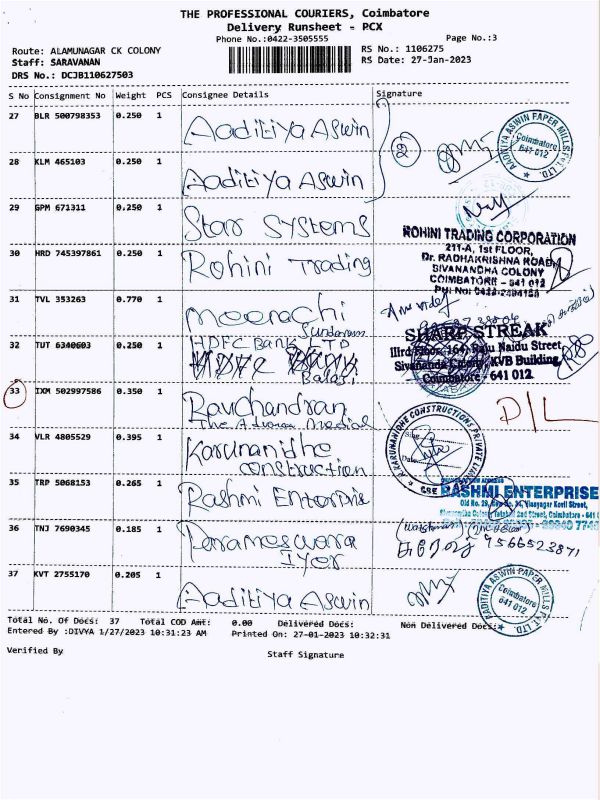 THE PROFESSIONAL COURIERS, Coimbatore
Delivery Runsheet - PCX
Phone No.:0422-3505555
Page No.:3
Route: ALAMUNAGAR CK COLONY
RS No.: 1106275
Staff: SARAVANAN
RS Date: 27-Jan-2023
DRS No.: DCJB110627503
S No Consignment No Weight PCS Consignee Details Signature
27 BLR 500798353 0.250 1 Aaditiya Aswin
28 KLM 465103 0.250 1 Aaditiya Aswin
2
AADITIYA ASWIN PAPER MILLS PVT. LTD.
Coimbatore
641 012
29 GPM 671311 0.250 1 Star Systems
30 HRD 745397861 0.250 1 Rohini Trading
ROHINI TRADING CORPORATION
211-A, 1st FLOOR,
Dr. RADHAKRISHNA ROAD,
SIVANANDHA COLONY
COIMBATORE - 641 012
31 TVL 353263 0.770 1 Meenachi
Sundaram
32 TUT 6340603 0.250 1 HDFC Bank LTD
Balaji
SHARP STREAK
IIIrd Floor, 164, Raju Naidu Street,
Sivananda Colony, KVB Building,
Coimbatore - 641 012.
33 IXM 502997586 0.350 1 Ravchandran
D/L
34 VLR 4805529 0.395 1 Karunanidhe
construction
KARUNANIDHE CONSTRUCTIONS PRIVATE
CBE
35 TRP 5068153 0.265 1 Rashmi Enterprise
RASHMI ENTERPRISE
36 TNJ 7690345 0.185 1 Parameswara
Iyer
9566523871
37 KVT 2755170 0.205 1 Aaditiya Aswin
AADITIYA ASWIN PAPER MILLS PVT. LTD.
Coimbatore
641 012
Total No. Of Docs: 37 Total COD Amt: 0.00 Delivered Docs: Non Delivered Docs:
Entered By :DIVYA 1/27/2023 10:31:23 AM Printed On: 27-01-2023 10:32:31
Verified By
Staff Signature